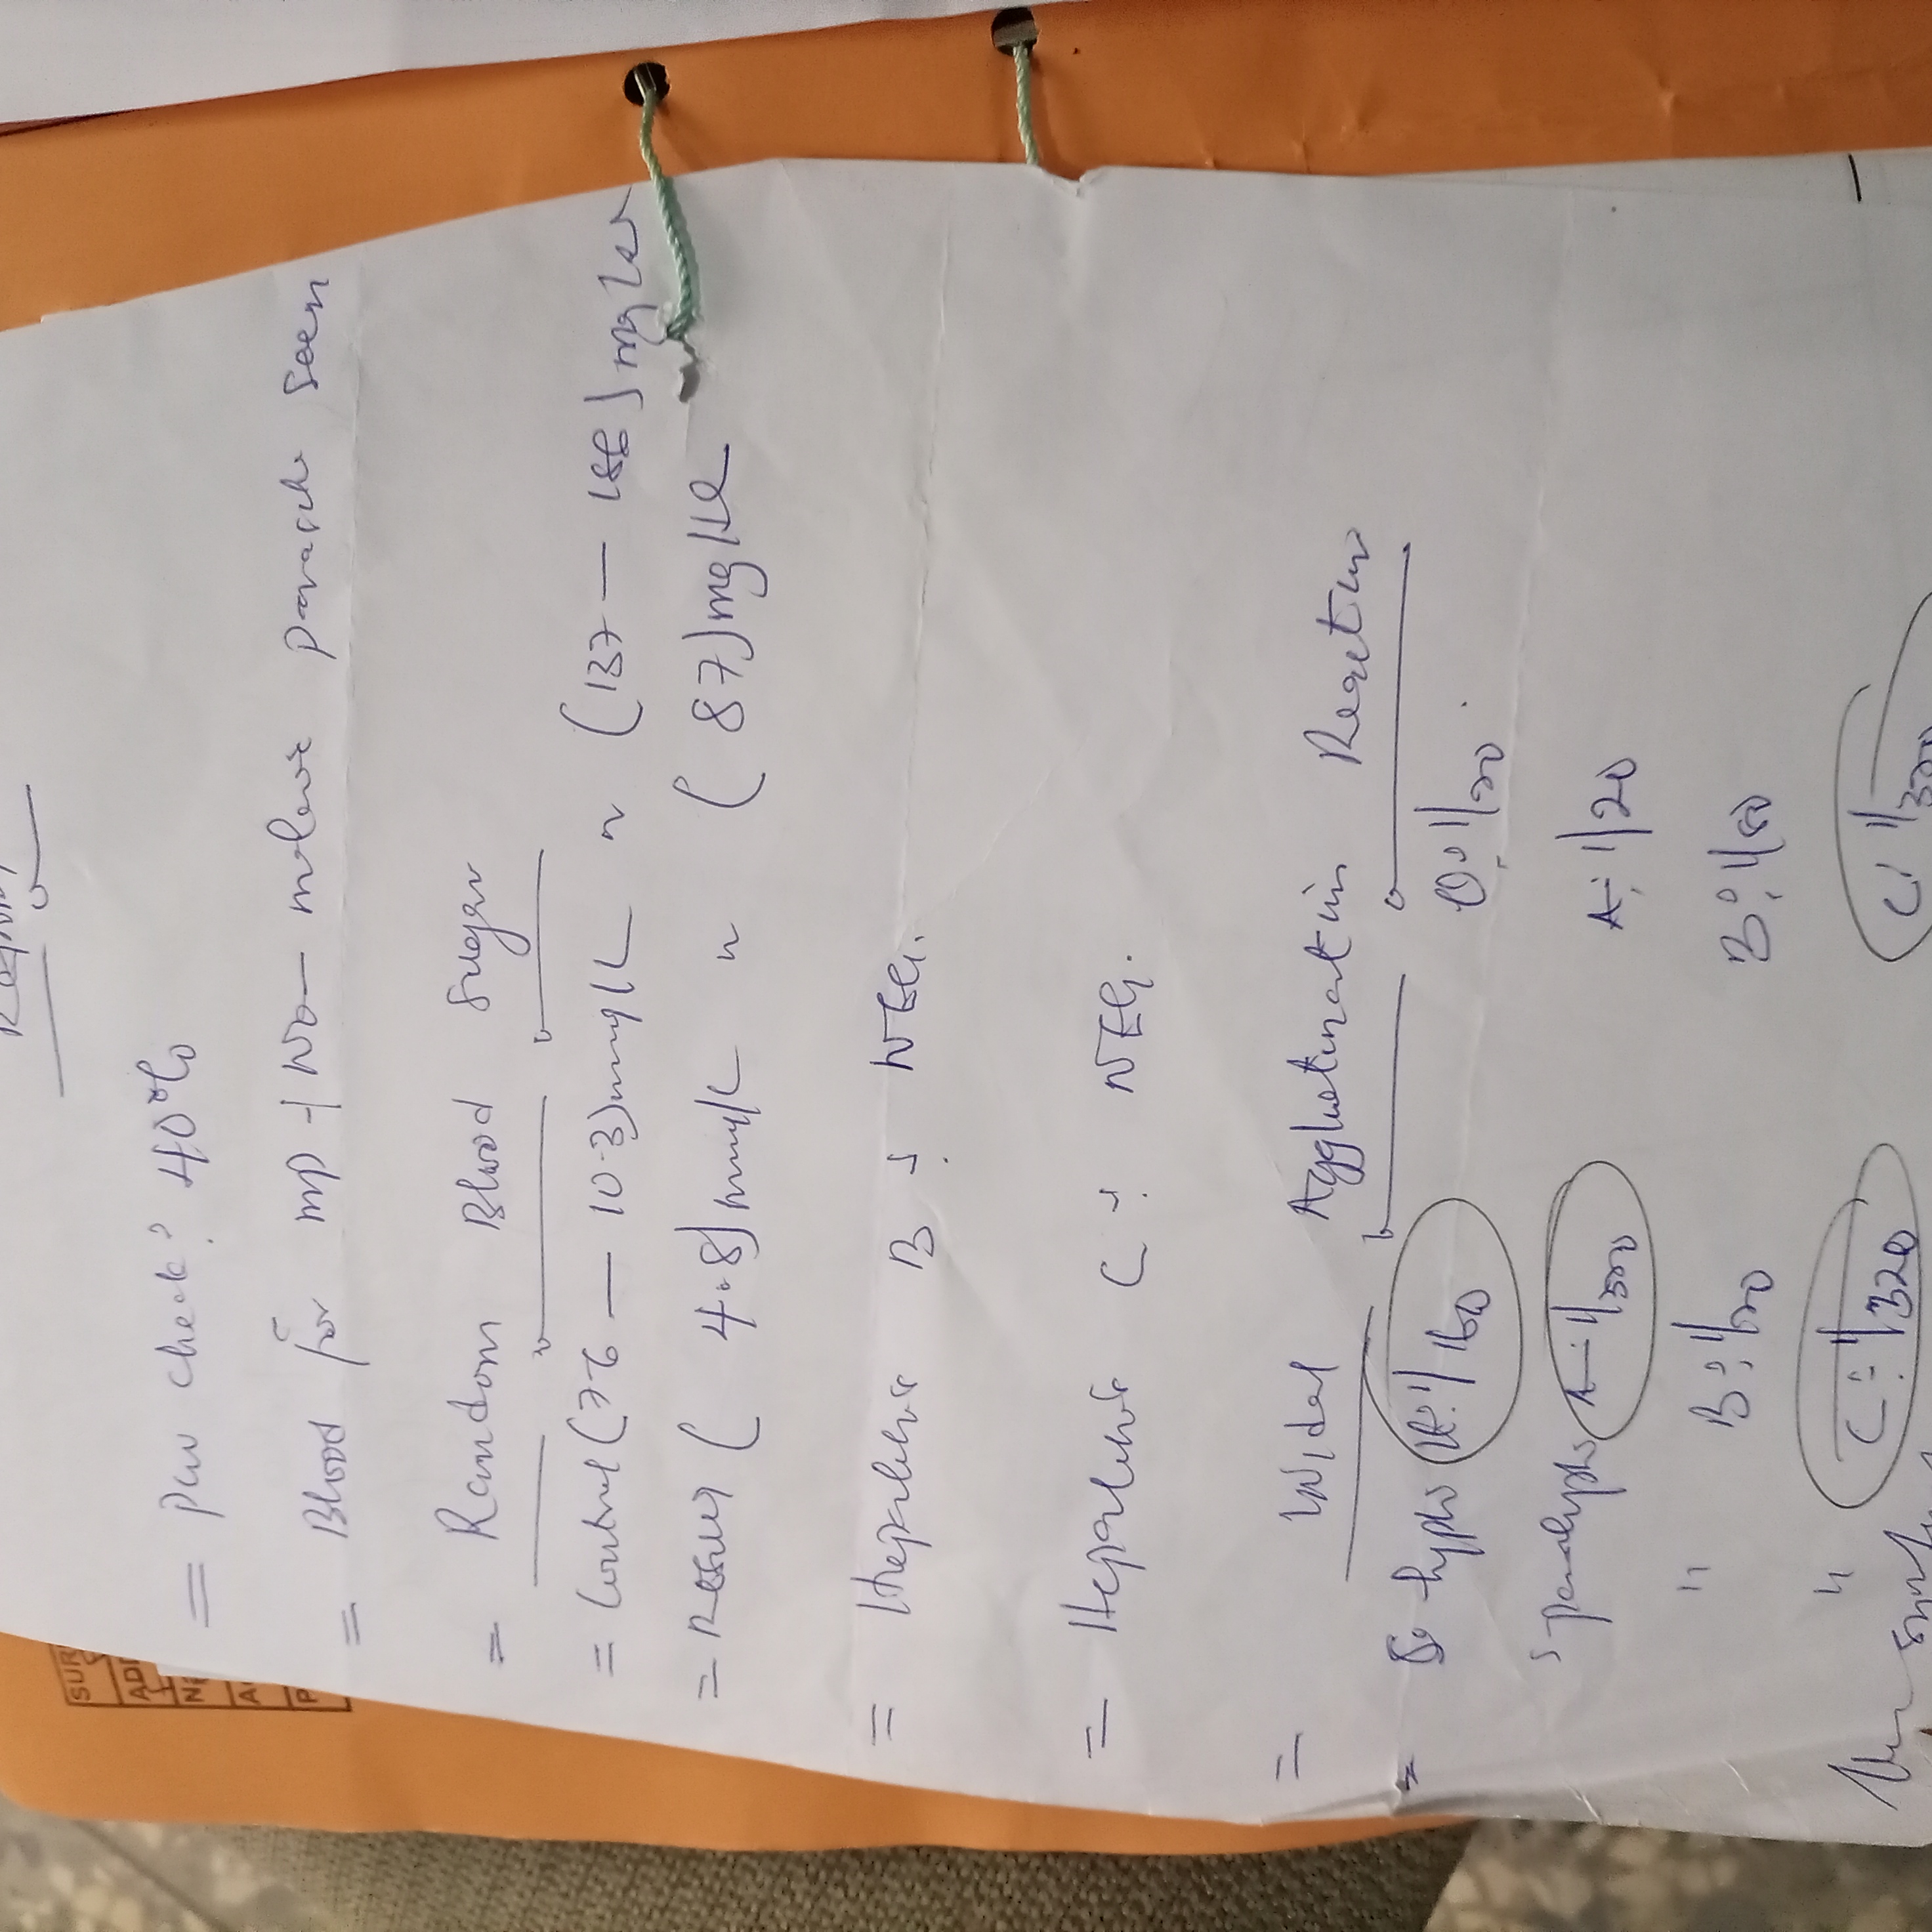 = PCV check: 40%
= Blood for mp + No malaria parasite seen
= Random Blood Sugar
= Control (7.6 — 10.3) mmol/L ~ (137 — 186) mg/dl
= Result ( 4.8) mmol/L ~ ( 87) mg/dl
= Hepatitis B : NEG.
= Hepatitis C : NEG.
= Widal Agglutination Reaction
S. typhi H: 1/160 O: 1/20
S. paratyphi A: 1/320 A: 1/20
" B: 1/20 B: 1/80
" C: 1/320 C: 1/320
SUR
AD
N
A
P